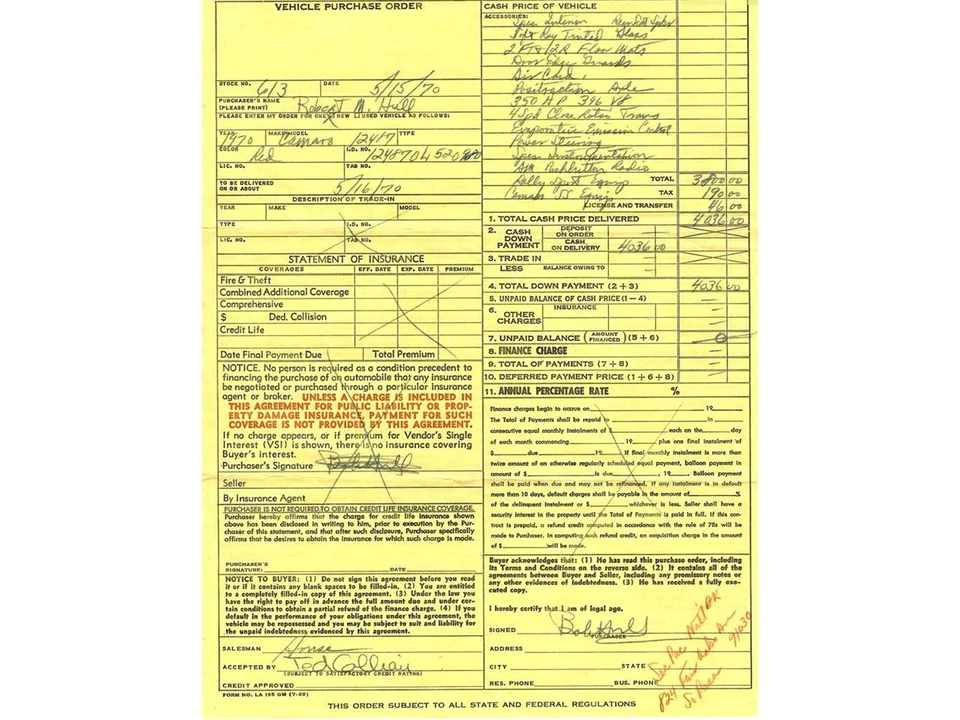 VEHICLE PURCHASE ORDER
STOCK NO. 613 DATE 5/15/70
PURCHASER'S NAME
(PLEASE PRINT) Robert M. Hull
PLEASE ENTER MY ORDER FOR ONE NEW USED VEHICLE AS FOLLOWS:
YEAR 1970 MAKE/MODEL Camaro 12487 TYPE
COLOR Red I.D. NO.
LIC. NO. TAB NO.
TO BE DELIVERED
ON OR ABOUT 5/16/70
DESCRIPTION OF TRADE-IN
YEAR MAKE MODEL
TYPE I.D. NO.
LIC. NO. TAB NO.
STATEMENT OF INSURANCE
COVERAGES EFF. DATE EXP. DATE PREMIUM
Fire & Theft
Combined Additional Coverage
Comprehensive
$ Ded. Collision
Credit Life
Date Final Payment Due Total Premium
NOTICE. No person is required as a condition precedent to
financing the purchase of an automobile that any insurance
be negotiated or purchased through a particular insurance
agent or broker. UNLESS A CHARGE IS INCLUDED IN
THIS AGREEMENT FOR PUBLIC LIABILITY OR PROP-
ERTY DAMAGE INSURANCE, PAYMENT FOR SUCH
COVERAGE IS NOT PROVIDED BY THIS AGREEMENT.
If no charge appears, or if premium for Vendor's Single
Interest (VSI) is shown, there is no insurance covering
Buyer's interest.
Purchaser's Signature Bob Hull
Seller
By Insurance Agent
PURCHASER IS NOT REQUIRED TO OBTAIN CREDIT LIFE INSURANCE COVERAGE.
Purchaser hereby affirms that the charge for credit life insurance shown
above has been disclosed in writing to him, prior to execution by the Pur-
chaser of this statement, and that after such disclosure, Purchaser specifically
affirms that he desires to obtain the insurance for which such charge is made.
PURCHASER'S
SIGNATURE: DATE
NOTICE TO BUYER: (1) Do not sign this agreement before you read
it or if it contains any blank spaces to be filled-in. (2) You are entitled
to a completely filled-in copy of this agreement. (3) Under the law you
have the right to pay off in advance the full amount due and under cer-
tain conditions to obtain a partial refund of the finance charge. (4) If you
default in the performance of your obligations under this agreement, the
vehicle may be repossessed and you may be subject to suit and liability for
the unpaid indebtedness evidenced by this agreement.
SALESMAN House
ACCEPTED BY Ted
(SUBJECT TO SATISFACTORY CREDIT RATING)
CREDIT APPROVED
FORM NO. LA 185 GM (7-69)
CASH PRICE OF VEHICLE
ACCESSORIES: Spec Interior
Soft Ray Tinted Glass
2 Ft & 2 R Floor Mats
Door Edge Guards
Air Cond.
Positraction Axle
350 HP 396 V8
4 Spd Close Ratio Trans
Evaporative Emission Control
Power Steering
Spec Instrumentation
AM Pushbutton Radio
Rally Sport Equip TOTAL 3800.00
Camaro SS Equip TAX 190.00
LICENSE AND TRANSFER 46.00
1. TOTAL CASH PRICE DELIVERED 4036.00
2. CASH DOWN PAYMENT DEPOSIT ON ORDER
CASH ON DELIVERY 4036 00
3. TRADE IN
LESS BALANCE OWING TO
4. TOTAL DOWN PAYMENT (2 + 3) 4036.00
5. UNPAID BALANCE OF CASH PRICE (1 — 4)
6. OTHER CHARGES INSURANCE
7. UNPAID BALANCE (AMOUNT FINANCED) (5 + 6) 0
8. FINANCE CHARGE
9. TOTAL OF PAYMENTS (7 + 8)
10. DEFERRED PAYMENT PRICE (1 + 6 + 8)
11. ANNUAL PERCENTAGE RATE %
Finance charges begin to accrue on 19
The Total of Payments shall be repaid to in
consecutive equal monthly instalments of $ each on the day
of each month commencing 19 plus one final instalment of
$ due 19 If final monthly instalment is more than
twice amount of an otherwise regularly scheduled equal payment, balloon payment in
amount of $ is due , 19 . Balloon payment
shall be paid when due and may not be refinanced. If any instalment is in default
more than 10 days, default charges shall be payable in the amount of %
of the delinquent instalment or $ whichever is less. Seller shall have a
security interest in the property until the Total of Payments is paid in full. If this con-
tract is prepaid, a refund credit computed in accordance with the rule of 78s will be
made to Purchaser. In computing such refund credit, an acquisition charge in the amount
of $ will be made.
Buyer acknowledges that: (1) He has read this purchase order, including
its Terms and Conditions on the reverse side. (2) It contains all of the
agreements between Buyer and Seller, including any promissory notes or
any other evidences of indebtedness. (3) He has received a fully exe-
cuted copy.
I hereby certify that I am of legal age.
SIGNED Bob Hull
PURCHASER
ADDRESS
CITY STATE
RES. PHONE BUS. PHONE
Sec Pac Natl BK
824 Fair Oaks Ave
So Pasa 91030
THIS ORDER SUBJECT TO ALL STATE AND FEDERAL REGULATIONS